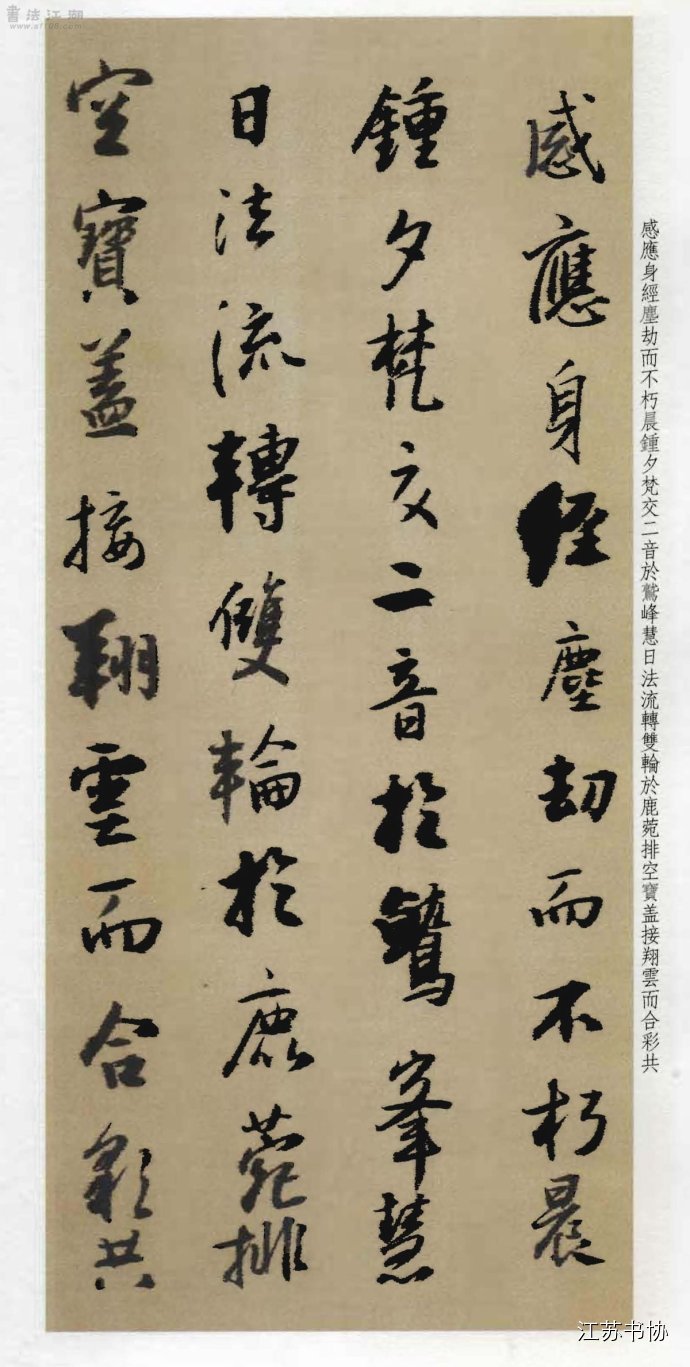 書法江湖
www.sf108.com
感應身經塵劫而不朽晨
鍾夕梵交二音於鷲峯慧
日法流轉雙輪於鹿菀排
空寶蓋接翔雲而合彩共
感應身經塵劫而不朽晨鍾夕梵交二音於鷲峰慧日法流轉雙輪於鹿菀排空寶盖接翔雲而合彩共
江苏书协